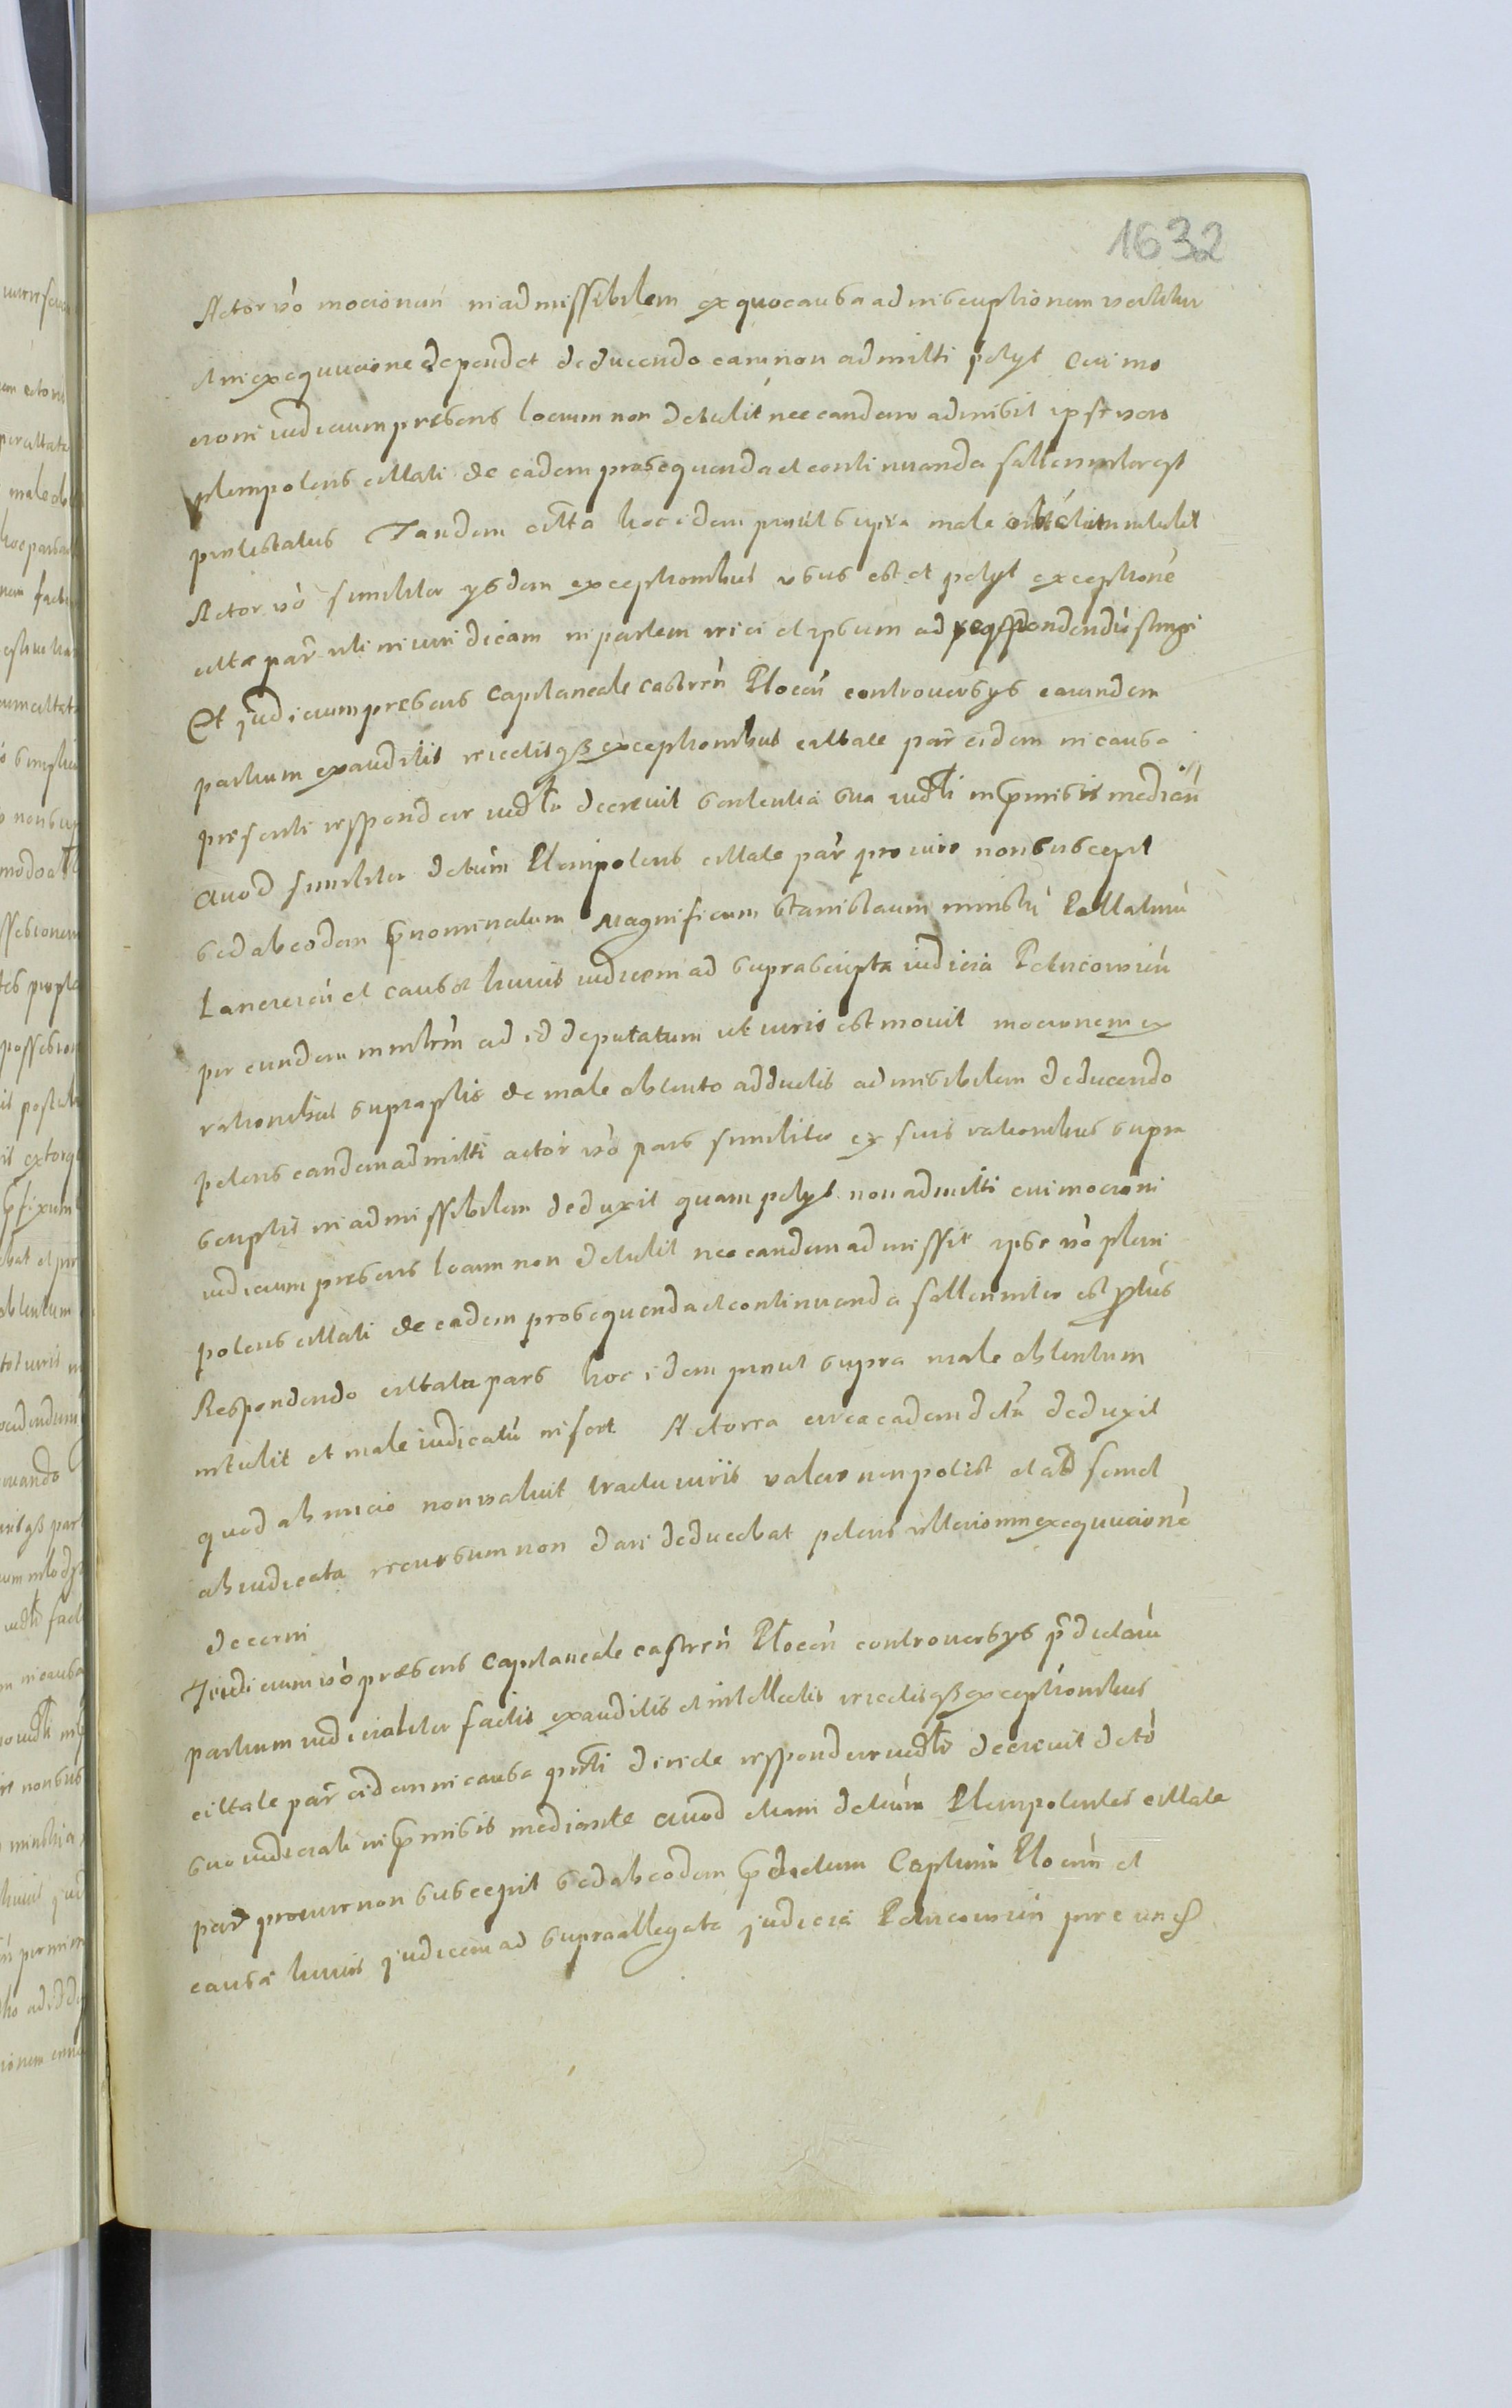 1632
Actor vo mocionem inadmissibilem ex quo causa ad inscriptionem vertitur
et in exequucione dependet deducendo eam non admitti petyt Cui mo
cioni iudicium presens locum non detulit nec eandem admisit ipse vero
plenipotens citati de eadem prosequenda et continuanda sallenniter est
protestatus Tandem citta hoc idem prout supra male obtentum intulit
Actor vo similiter ysdem exceptionibus usus est et petyt exceptione
cittae par uti iniuridicam in partem reici et ipsum ad respondendu stringi
Et judicium presens Capitaneale castren Plocen controversys earundem
partium exauditis reiectisqz exceptionibus cittatae par eidem in causa
presenti respondere iudlr decrevit sententia sua iudli in pmissis median
Quod similiter detum Plenipotens cittate par pro iure non suscepit
sed ab eodem pnominatum Magnificum Stanislaum Minski Pallatinu
Lancicien et causae huius iudicem ad suprascripta iudicia Petricovien
per eundem mntrm ad id deputatum ut iuris est movit mocionem ex
rationibus supraptis de male obtento adductis admisibilem deducendo
petens eandem admitti actor vo pars similiter ex suis rationibus supra
scriptis inadmissibilem deduxit quam petyt non admitti cui mocioni
iudicium presens locum non detulit nec eandem admissit ipse vo pleni
potens cittati de eadem prosequenda et continuanda sallenniter est ptus
Respondendo cittata pars hoc idem prout supra male obtentum
intulit et male iudicatu infert Actorea circa eadem deta deduxit
quod ab inicio non valuit tractu iuris valere non potest et ab semel
abiudicata recursum non dari deducebat petens ulteriorem exequucione
decerni
Judicium vo praesens Capitaneale castren Plocen controversys pdictaru
partium iudicialiter factis exauditis et intellectis reiectisqz exceptionibus
cittate par eidem in causa pnti directe respondere iudlr decrevit deto
suo iudiciali in pmissis mediante Quod etiam detum Plenipotentes cittate
par pro iure non suscepit sed ab eodem pdictum Captum Plocen et
causae huius judicem ad supraallegata judicia Petricovien per eund